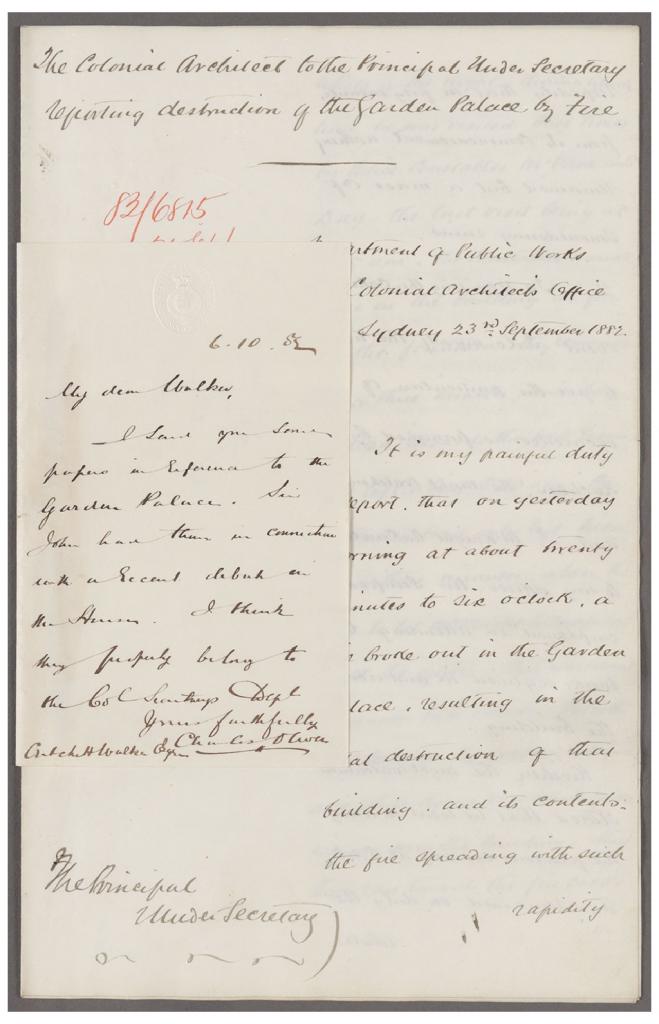 The Colonial Architect to the Principal Under Secretary
reporting destruction of the Garden Palace by Fire
82/6815
artment of Public Works
Colonial Architect's Office
Sydney 23rd September 1882.
6.10.82
My dear Walker,
I send you some
papers in reference to the
Garden Palace. Sir
John had them in connection
with a recent debate in
the House. I think
they properly belong to
the Col Secretarys Dept
Yours faithfully
Critchett Walker Esq Charles Oliver
It is my painful duty
eport, that on yesterday
rning at about twenty
nutes to six o'clock, a
broke out in the Garden
lace, resulting in the
tal destruction of that
building, and its contents:
the fire spreading with such
rapidity
The Principal
Under Secretary